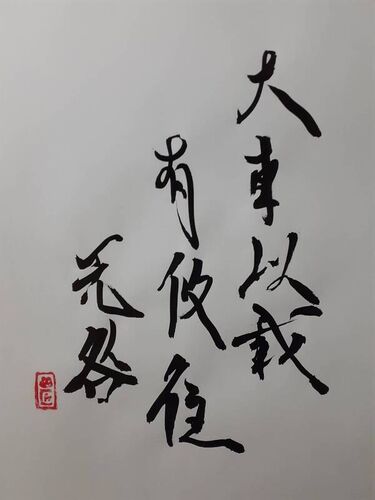 大車以載
有攸往
无咎